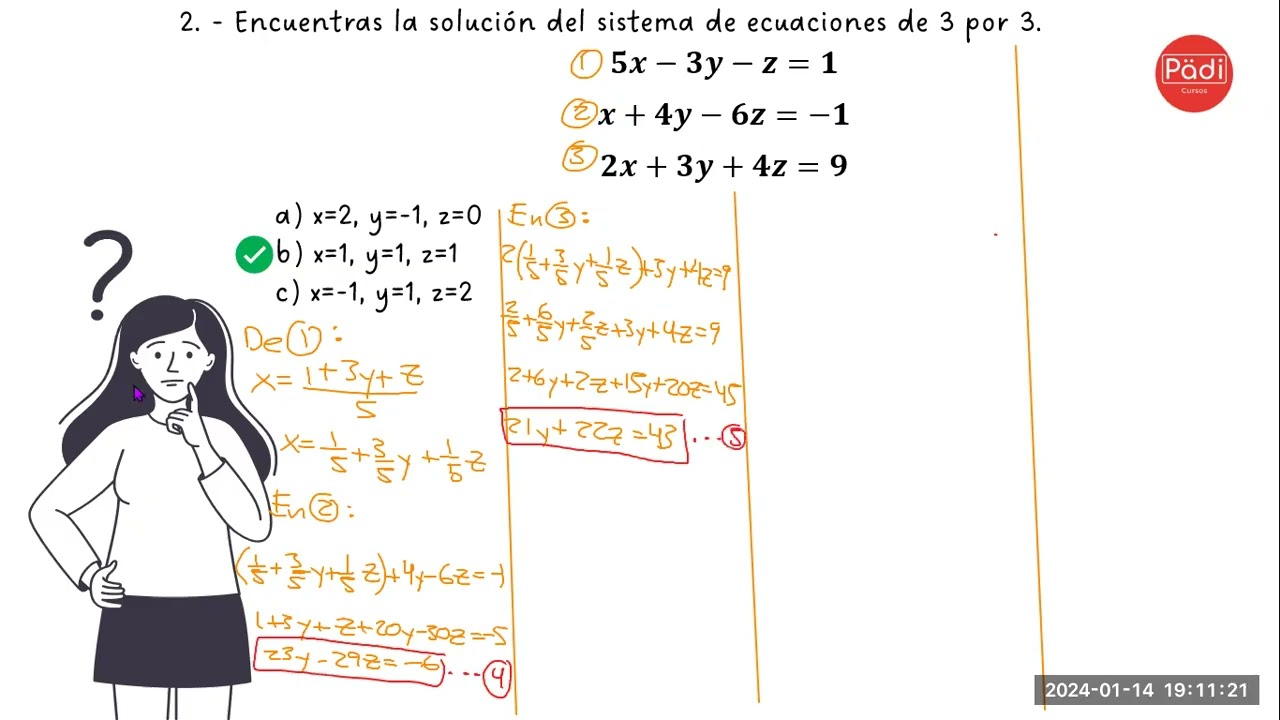 2. - Encuentras la solución del sistema de ecuaciones de 3 por 3.
① 5x − 3y − z = 1
② x + 4y − 6z = −1
③ 2x + 3y + 4z = 9
Pädi
Cursos
a) x=2, y=-1, z=0
b) x=1, y=1, z=1
c) x=-1, y=1, z=2
?
De ①:
x= (1+3y+z)/5
x= 1/5 + 3/5 y + 1/5 z
En ②:
(1/5 + 3/5 y + 1/5 z)+4y-6z=-1
1+3y+z+20y-30z=-5
23y-29z=-6 ... ④
En ③:
2(1/5 + 3/5 y + 1/5 z)+3y+4z=9
2/5 + 6/5 y + 2/5 z+3y+4z=9
2+6y+2z+15y+20z=45
21y+22z=43 ... ⑤
2024-01-14 19:11:21